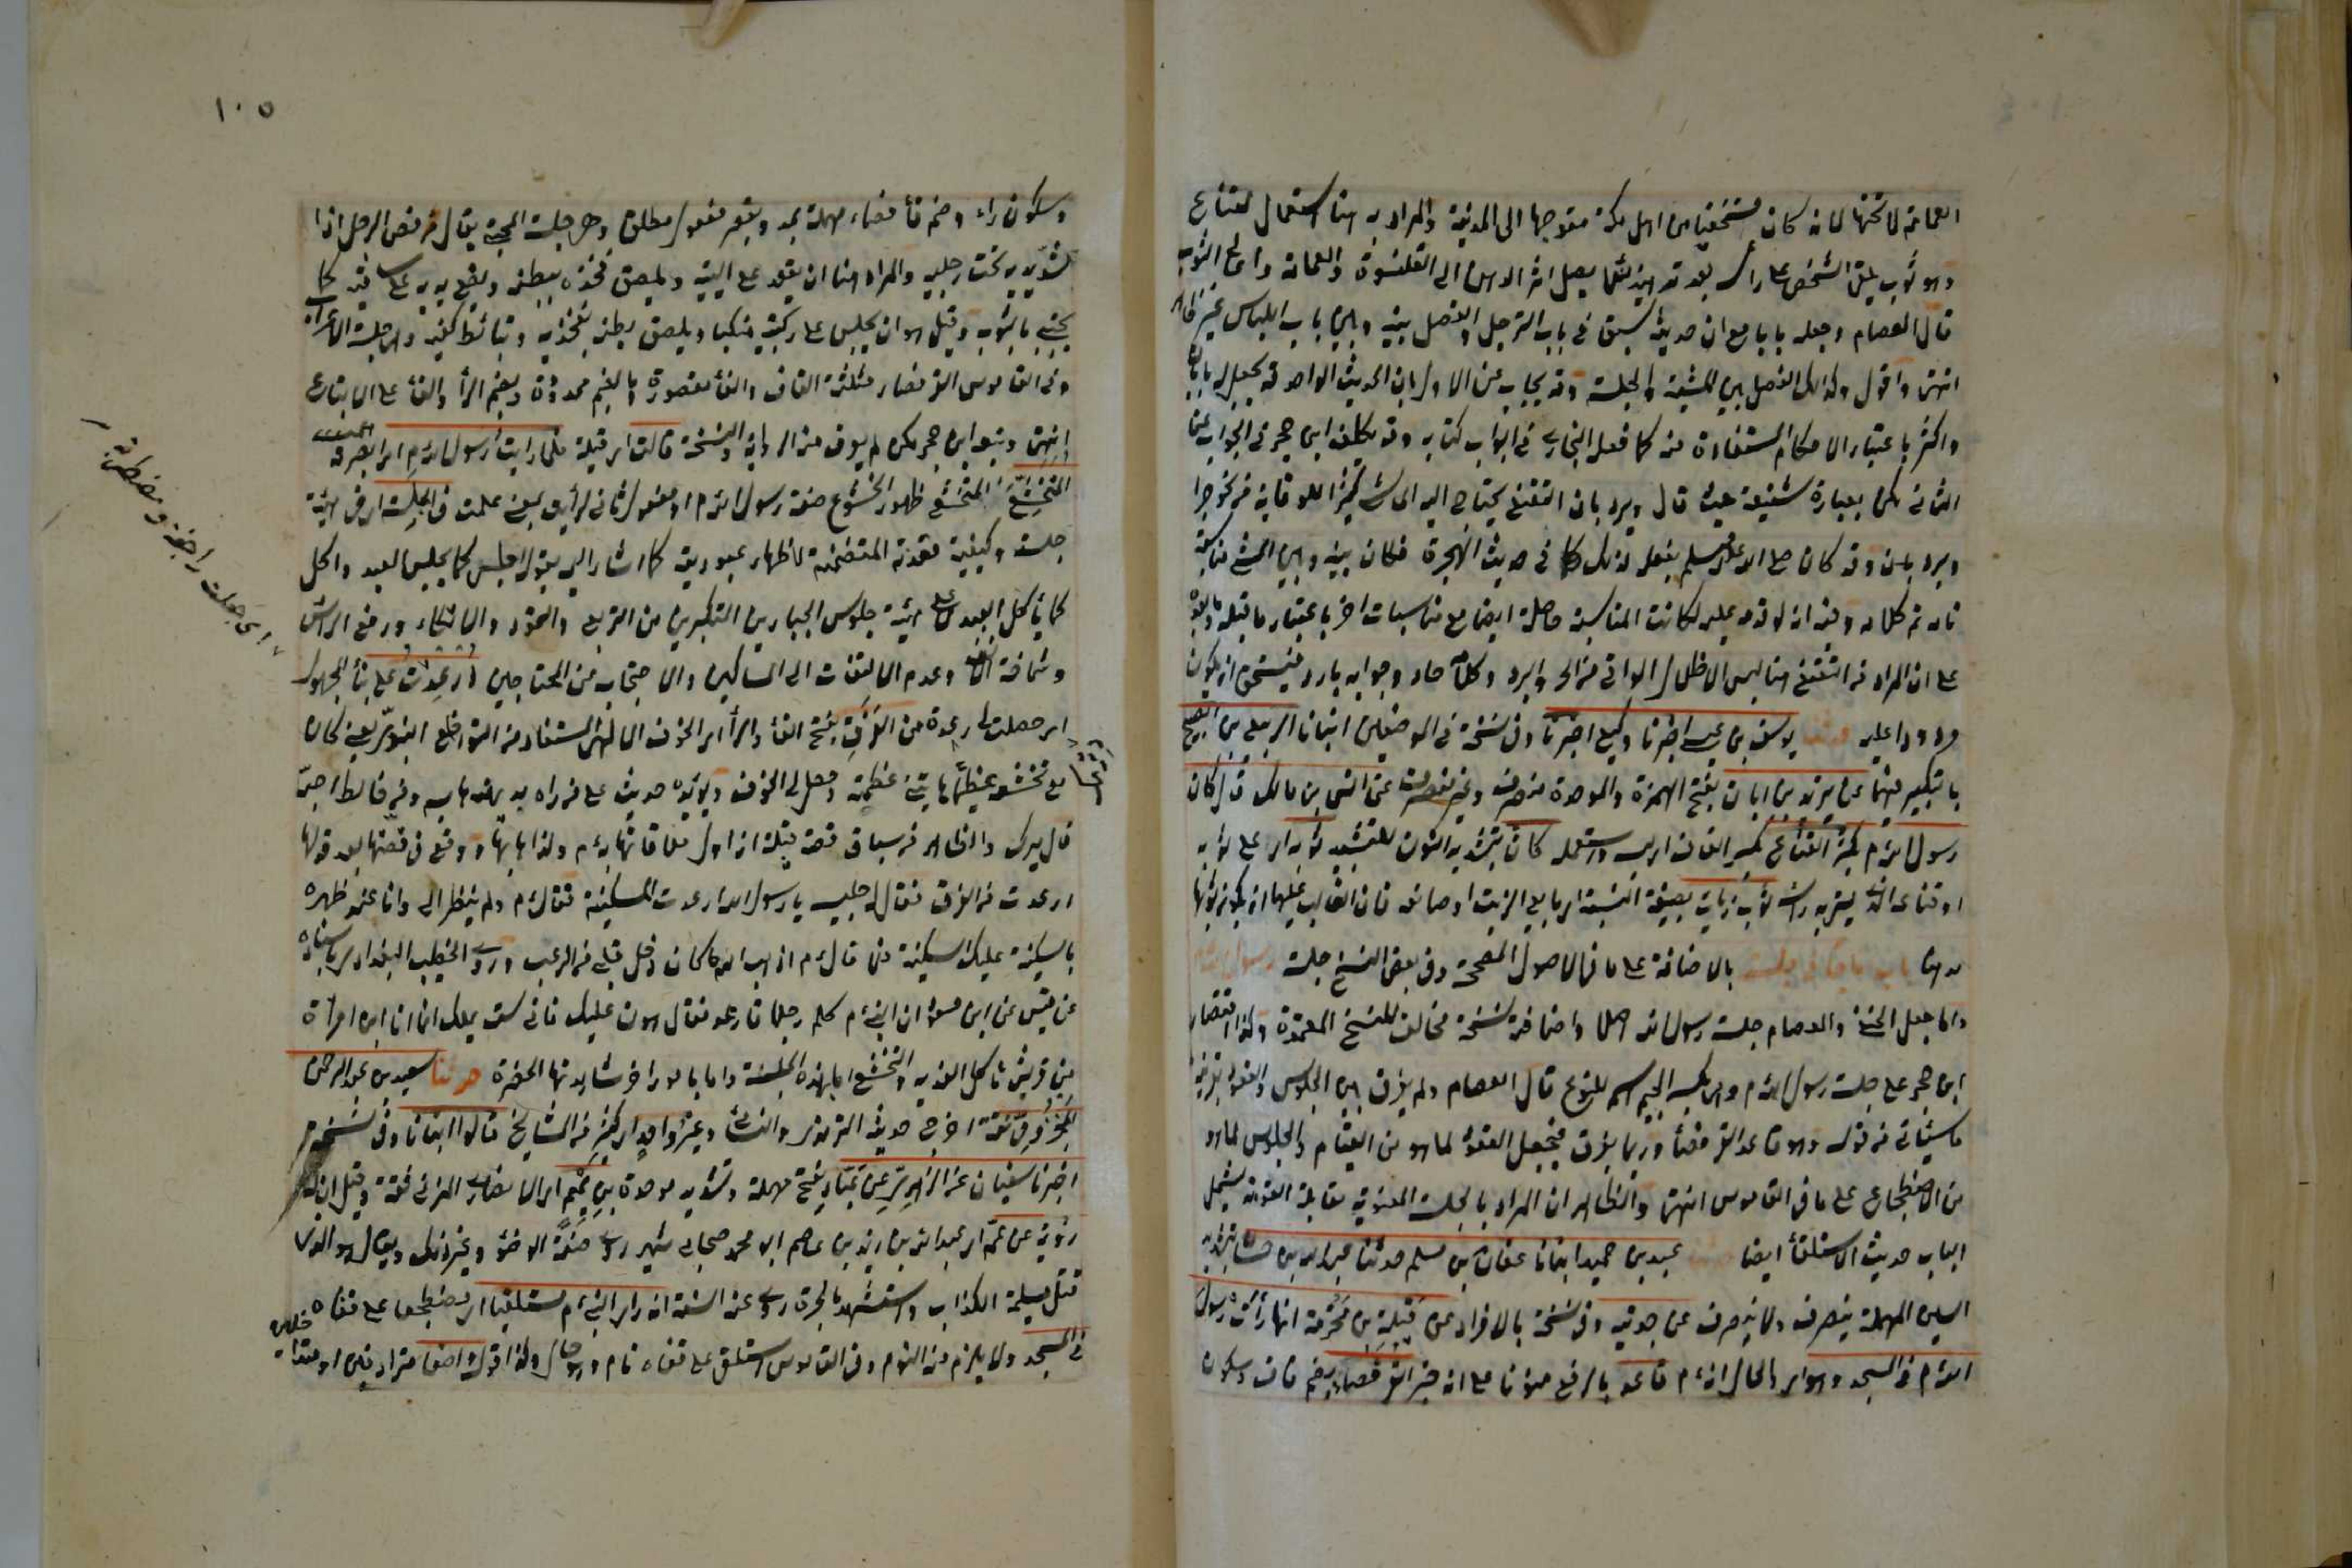 العمامة لا تحتها لانه كان مستخفيا من اهل مكة متوجها الى المدينة والمراد به هنا استعمال القناع
وهو ثوب يلقى الشخص على راسه بعد تدهينه لئلا يصل اثر الدهن الى القلنسوة والعمامة واعالي الثوب
قال العصام وجعله بابا مع ان حديثه سبق في باب الترجل والفصل بينه وبين باب اللباس غير ظاهر
انتهى واقول وكذلك الفصل بين المشية والجلسة وقد يجاب عن الاول بان الحديث الواحد قد يجعل له بابان
واكثر باعتبار الاحكام المستفادة منه كما فعله البخاري في ابواب كتابه وقد تكلف ابن حجر في الجواب عن
الثاني لكن بعبارة شنيعة حيث قال ويرد بان التقنع يحتاج اليه الماشي كثيرا للوقاية من نحو حر
وبرد وقد كان صلى الله عليه وسلم يفعل لذلك كما في حديث الهجرة فكان بينه وبين المشي مناسبة
تامة تم كلامه وفيه انه لو قدمه عليه لكانت المناسبة حاصلة ايضا مع مناسبات اخر باعتبار ما قبله وما بعده
على ان المراد من التقنع هنا ليس الاظلال الواقي من الحر والبرد وكلامه حار وجوابه بارد فيستحق ان يكون
مردودا عليه حدثنا يوسف بن عيسى اخبرنا وكيع اخبرنا وفي نسخة في الموضعين انبانا الربيع بن الصبيح
بالتكبير فيهما عن يزيد بن ابان بفتح الهمزة والموحدة منصرف وغير منصرف عن انس بن مالك قال كان
رسول الله م يكثر القناع بكسر القاف اي لبسه واستعماله كان بتشديد النون للتشبيه ثوبه اي على ثوبه
او قناعه الذي يستر به راسه ثوب زيات بصيغة النسبة اي بايع الزيت او صانعه فان الغالب عليهما ان يكون ثوبهما
مدهنا باب ما جاء في جلسة بالاضافة على ما في الاصول المصححة وفي بعض النسخ جلسة رسول الله
واما جعل الحنفي والعصام جلسة رسول الله اصلا واضافه نسخة مخالف للنسخ المعتمدة ولذا اقتصر
ابن حجر على جلسة رسول الله م وهي بكسر الجيم اسم للنوع قال العصام ولم يفرق بين الجلوس والقعود بقرينة
ما سيأتي من قوله وهو قاعد القرفصاء وربما يفرق فيجعل القعود لما هو من القيام والجلوس لما هو
من الاضطجاع على ما في القاموس انتهى والظاهر ان المراد بالجلسة المعنوية مقابلة القومة ليشمل
الباب حديث الاستلقاء ايضا حدثنا عبد بن حميد انبانا عفان بن مسلم حدثنا عبد الله بن حسان بتشديد
السين المهملة ينصرف ولا ينصرف عن جدتيه وفي نسخة بالافراد عن قيلة بن مخرمة انها رأت رسول
الله م في المسجد وهو اي والحال انه م قاعد بالرفع منونا على انه خبر القرفصاء بضم قاف وسكون
١٠٥
وسكون راء وضم فاء فصاد مهملة يمد ويقصر مفعول مطلق وهي جلسة المحتبي يقال قرفص الرجل اذا
شد يديه تحت رجليه والمراد هنا ان يقعد على اليتيه ويلصق فخذيه ببطنه ويضع يديه على ساقيه كما
يحتبي بالثوب وقيل هو ان يجلس على ركبتيه متكئا ويلصق بطنه بفخذيه ويتابط كفيه وهي جلسة الاعراب
وفي القاموس القرفصاء مثلثة القاف والفاء مقصورة وبالضم ممدودة وبضم الراء والفاء على الاتباع
انتهى وتبعه ابن حجر لكن لم يعرف من الرواية والنسخة قالت اي قيلة فلما رايت رسول الله م اي ابصرته
المتخشع المتخشع ظهور الخشوع صفة رسول الله م او مفعول ثان لرأيت بمعنى علمت في الجلسة اي في هيئة
جلسته وكيفية قعدته المتضمنة لاظهار عبوديته كما اشار اليه بقوله اجلس كما يجلس العبد واكل
كما يأكل العبد لا على هيئة جلوس الجبارين المتكبرين من التربع والتمدد والاتكاء ورفع الرأس
وشماخة الانف وعدم الالتفات الى المساكين والاحتجاب عن المحتاجين ارعدت على بناء المجهول
اي حصلت لي رعدة من الفرق بفتح الفاء والراء اي الخوف الالهي المستفاد من التواضع النبوي يعني كان
مع تخشعه عظيما يهابه من عظمته وحصل لي الخوف ويؤيده حديث علي من رآه بديهة هابه ومن خالطه احبه
قال ميرك والظاهر من سياق قصة قيلة انه اول ملاقاتها به م ولذا هابته ووقع في قصتها بعد قولها
ارعدت من الفرق فقال له جليسه يا رسول الله ارعدت المسكينة فقال م ولم ينظر الي وانا عند ظهره
يا مسكينة عليك السكينة فلما قال م اذهب الله ما كان دخل قلبي من الرعب وروى الخطيب البغدادي باسناده
عن قيس عن ابن مسعود ان النبي م كلم رجلا فارعد فقال هون عليك فاني لست بملك انما انا ابن امرأة
من قريش تأكل القديد والتخشع اما بهذه الجلسة واما بامور اخر شاهدتها الحضرة حدثنا سعيد بن عبد الرحمن
المخزومي ثقة اخرج حديثه الترمذي والنسائي وغير واحد اي كثير من المشايخ قالوا انبانا وفي نسخة
اخبرنا سفيان عن الزهري عن عباد بفتح مهملة وتشديد موحدة بن تميم اي الانصاري المزني ثقة وقيل ان له
رؤية عن عمه اي عبد الله بن زيد بن عاصم ابو محمد صحابي شهير روى صفة الوضوء وغير ذلك ويقال هو الذي
قتل مسيلمة الكذاب واستشهد بالحرة روى عنه الستة انه راى النبي م مستلقيا اي مضطجعا على قفاه
في المسجد ولا يلزم منه النوم وفي القاموس استلقى على قفاه نام وهو حال ولذا قوله واضعا
اي جعلت راجفة ومضطربة